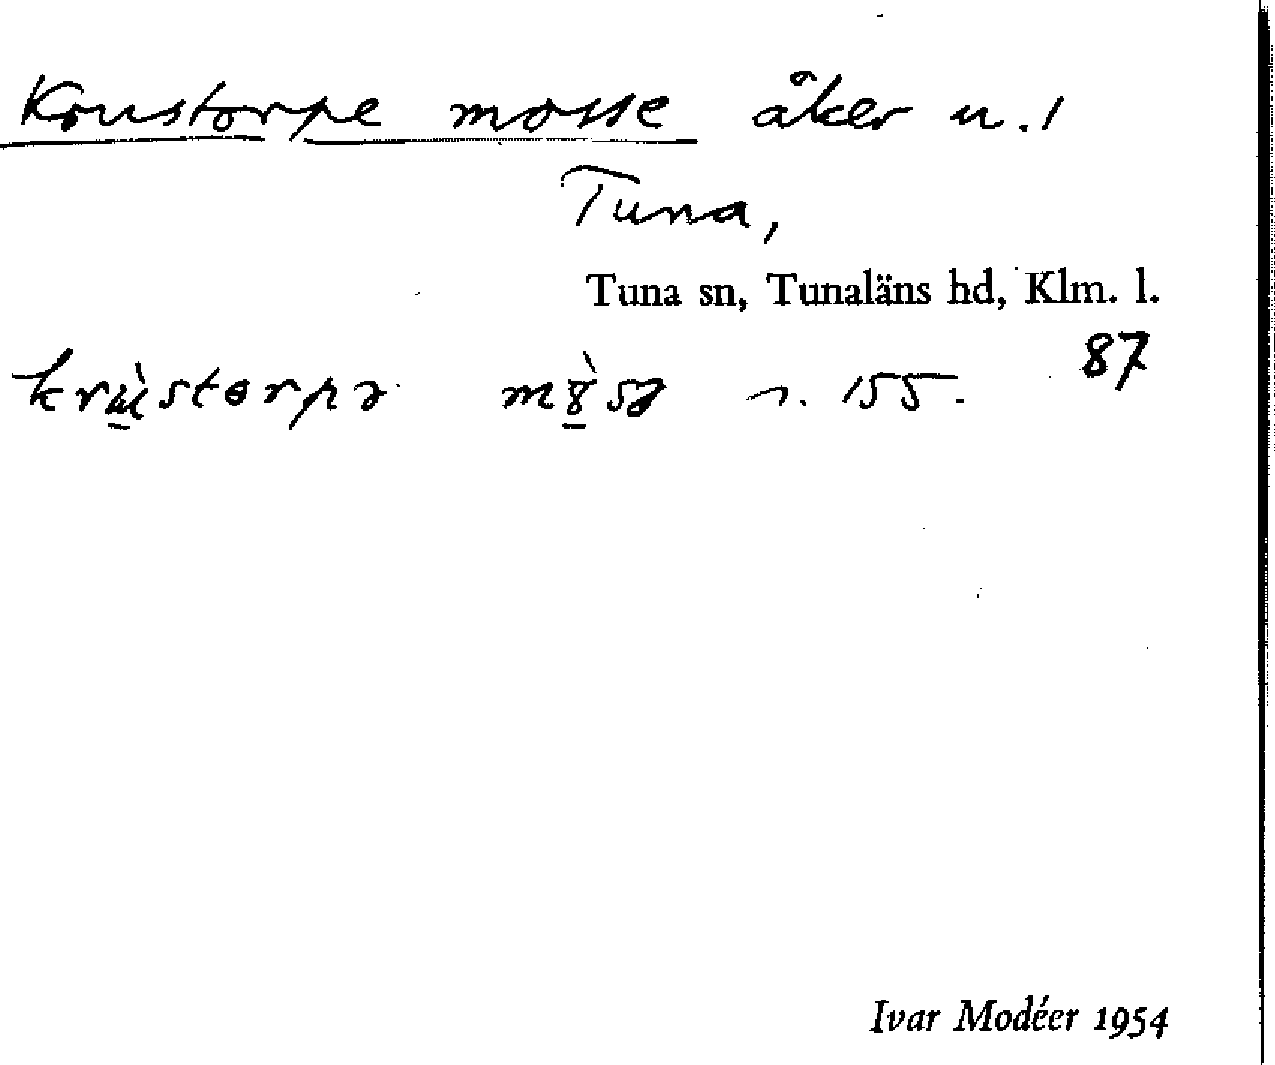 Kroustorpe mosse åker u. 1
Tuna,
Tuna sn, Tunaläns hd, Klm. l.
87
155.
Ivar Modéer 1954